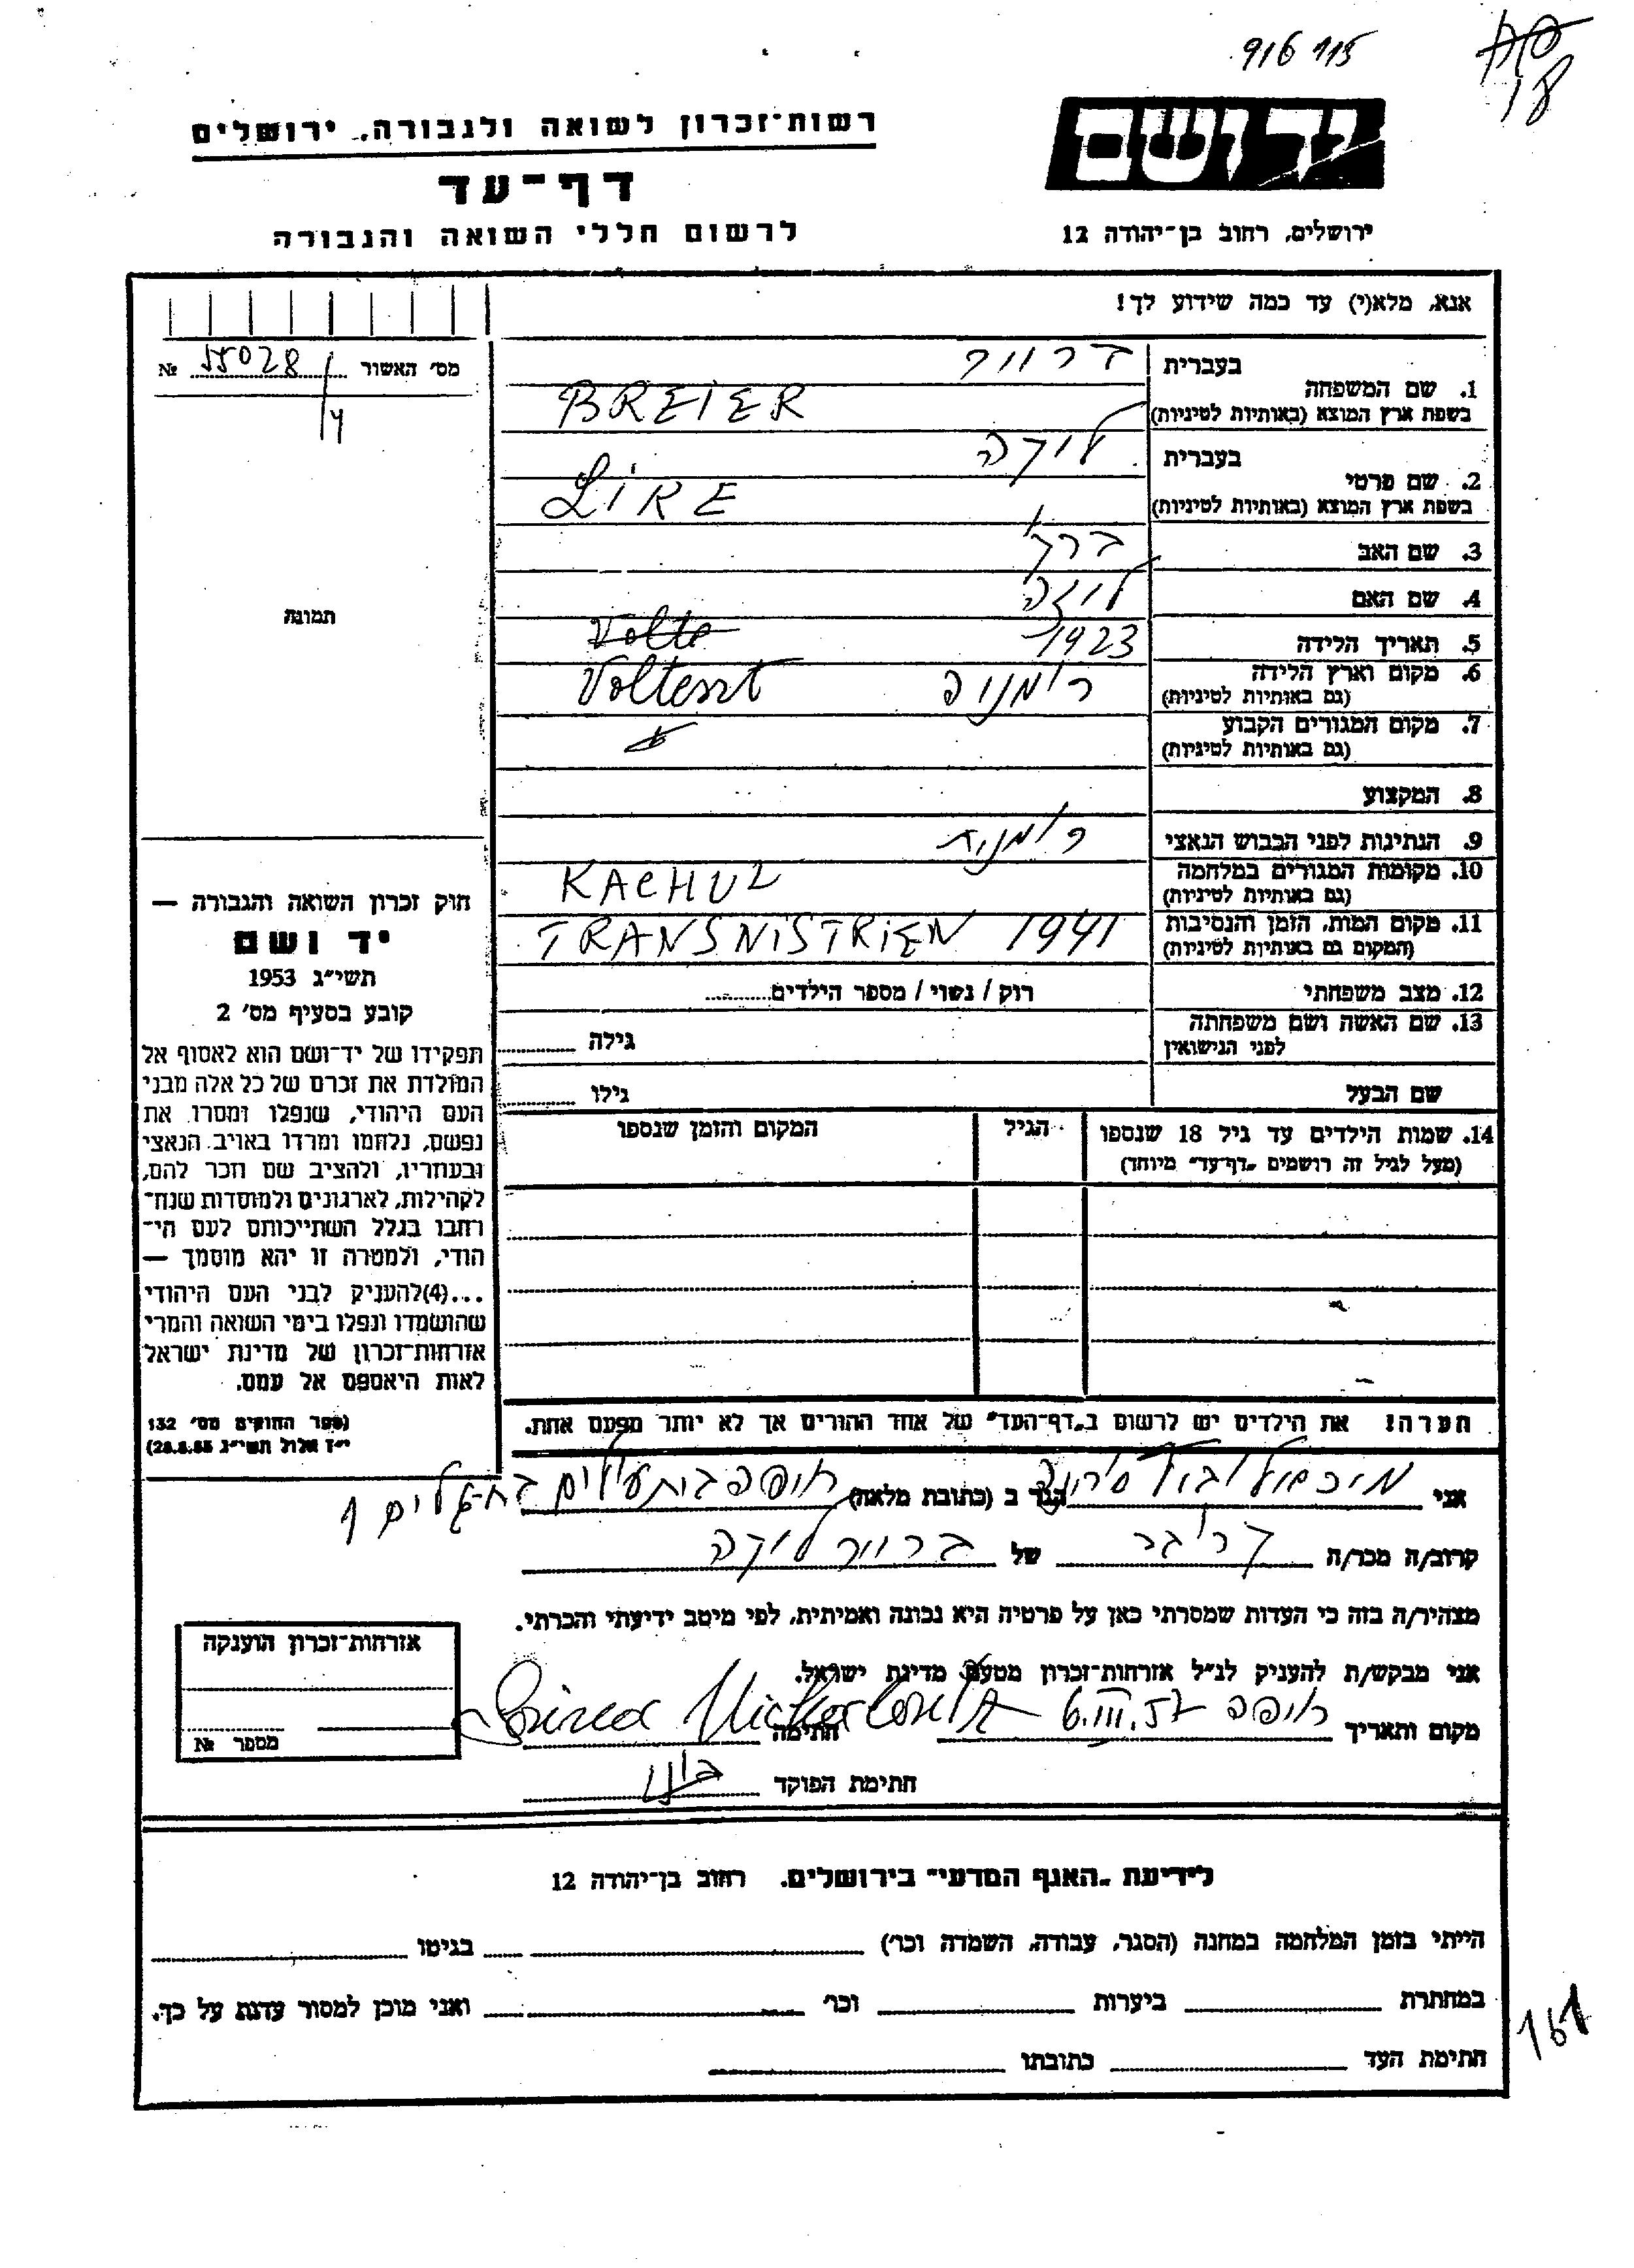 916 115
18
יד ושם
רשות־זכרון לשואה ולגבורה. ירושלים
דף־עד
ירושלים, רחוב בן־יהודה 12
לרשום חללי השואה והגבורה
אנא, מלא(י) עד כמה שידוע לך!
מס׳ האשור 55028 №
4
1. שם המשפחה
בעברית ברייר
בשפת ארץ המוצא (באותיות לטיניות) BREIER
2. שם פרטי
בעברית ליקה
בשפת ארץ המוצא (באותיות לטיניות) LIKE
3. שם האב
4. שם האם
5. תאריך הלידה 1923 Volte
6. מקום וארץ הלידה רומניה Volteszt
(גם באותיות לטיניות)
7. מקום המגורים הקבוע
(גם באותיות לטיניות)
8. המקצוע
9. הנתינות לפני הכבוש הנאצי רומנית
10. מקומות המגורים במלחמה KACHUL
(גם באותיות לטיניות)
11. מקום המות, הזמן והנסיבות TRANSNISTRIEN 1941
(המקום גם באותיות לטיניות)
12. מצב משפחתי רוק / נשוי / מספר הילדים
13. שם האשה ושם משפחתה
לפני הנישואין גילה
שם הבעל גילו
14. שמות הילדים עד גיל 18 שנספו
(מעל לגיל זה רושמים „דף־עד״ מיוחד)
הגיל
המקום והזמן שנספו
תמונה
חוק זכרון השואה והגבורה —
יד ושם
תשי״ג 1953
קובע בסעיף מס׳ 2
תפקידו של יד־ושם הוא לאסוף אל
המולדת את זכרם של כל אלה מבני
העם היהודי, שנפלו ומסרו את
נפשם, נלחמו ומרדו באויב הנאצי
ובעוזריו, ולהציב שם וזכר להם,
לקהילות, לארגונים ולמוסדות שנח־
רבו בגלל השתייכותם לעם הי־
הודי, ולמטרה זו יהא מוסמך —
...(4)להעניק לבני העם היהודי
שהושמדו ונפלו בימי השואה והמרי
אזרחות־זכרון של מדינת ישראל
לאות היאספם אל עמם.
(ספר החוקים מס׳ 132
י״ז אלול תשי״ג 28.8.55)
הערה! את הילדים יש לרשום ב„דף־העד״ של אחד ההורים אך לא יותר מפעם אחת.
אני הגר ב (כתובת מלאה) חיפה בית עולים
קרוב/ה מכר/ה של ברייר ליקה
מצהיר/ה בזה כי העדות שמסרתי כאן על פרטיה היא נכונה ואמיתית, לפי מיטב ידיעתי והכרתי.
אני מבקש/ת להעניק לנ״ל אזרחות־זכרון מטעם מדינת ישראל.
מקום ותאריך חיפה 6.III.57 חתימה
חתימת הפוקד
אזרחות־זכרון הוענקה
מספר №
לידיעת „האגף המדעי״ בירושלים. רחוב בן־יהודה 12
הייתי בזמן המלחמה במחנה (הסגר, עבודה, השמדה וכר׳) בגיטו
במחתרת ביערות וכר׳ ואני מוכן למסור עדות על כך.
חתימת העד כתובתו
161